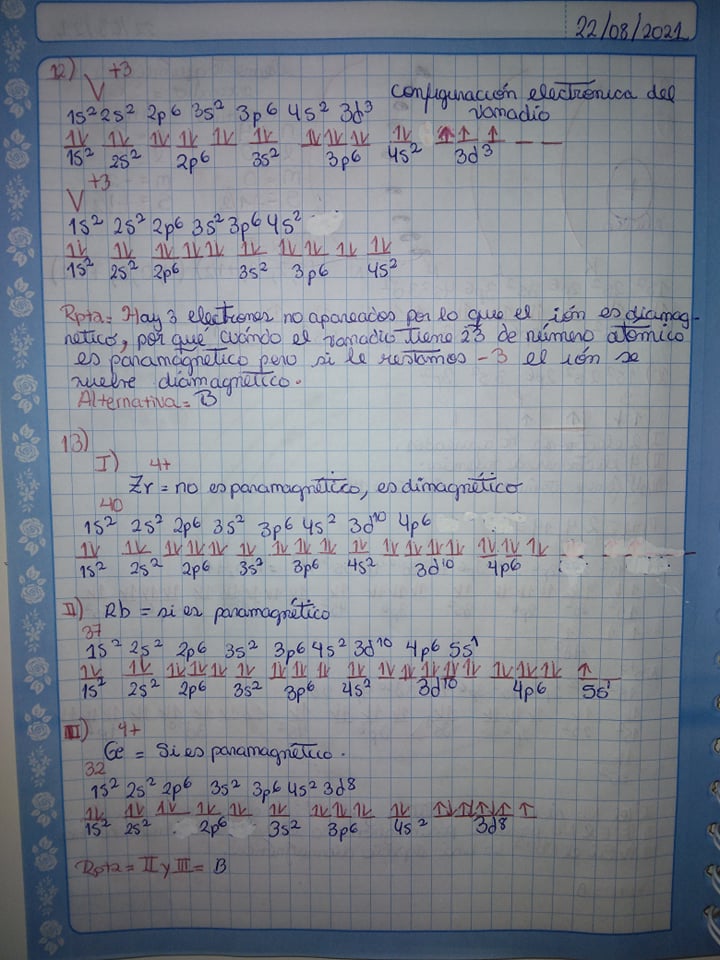 22/08/2021
12) V +3
1s² 2s² 2p⁶ 3s² 3p⁶ 4s² 3d³ configuración electrónica del vanadio
1s² 2s² 2p⁶ 3s² 3p⁶ 4s² 3d³
V +3
1s² 2s² 2p⁶ 3s² 3p⁶ 4s²
1s² 2s² 2p⁶ 3s² 3p⁶ 4s²
Rpta = Hay 3 electrones no apareados por lo que el ión es diamag-
nético, por que cuándo el vanadio tiene 23 de número atómico
es paramagnético pero si le restamos -3 el ión se
vuelve diamagnético.
Alternativa = B
13)
I) 4+
Zr = no es paramagnético, es dimagnético
40
1s² 2s² 2p⁶ 3s² 3p⁶ 4s² 3d¹⁰ 4p⁶
1s² 2s² 2p⁶ 3s² 3p⁶ 4s² 3d¹⁰ 4p⁶
II) Rb = si es paramagnético
37
1s² 2s² 2p⁶ 3s² 3p⁶ 4s² 3d¹⁰ 4p⁶ 5s¹
1s² 2s² 2p⁶ 3s² 3p⁶ 4s² 3d¹⁰ 4p⁶ 5s¹
III) 4+
Ge = Si es paramagnético.
32
1s² 2s² 2p⁶ 3s² 3p⁶ 4s² 3d⁸
1s² 2s² 2p⁶ 3s² 3p⁶ 4s² 3d⁸
Rpta = II y III = B